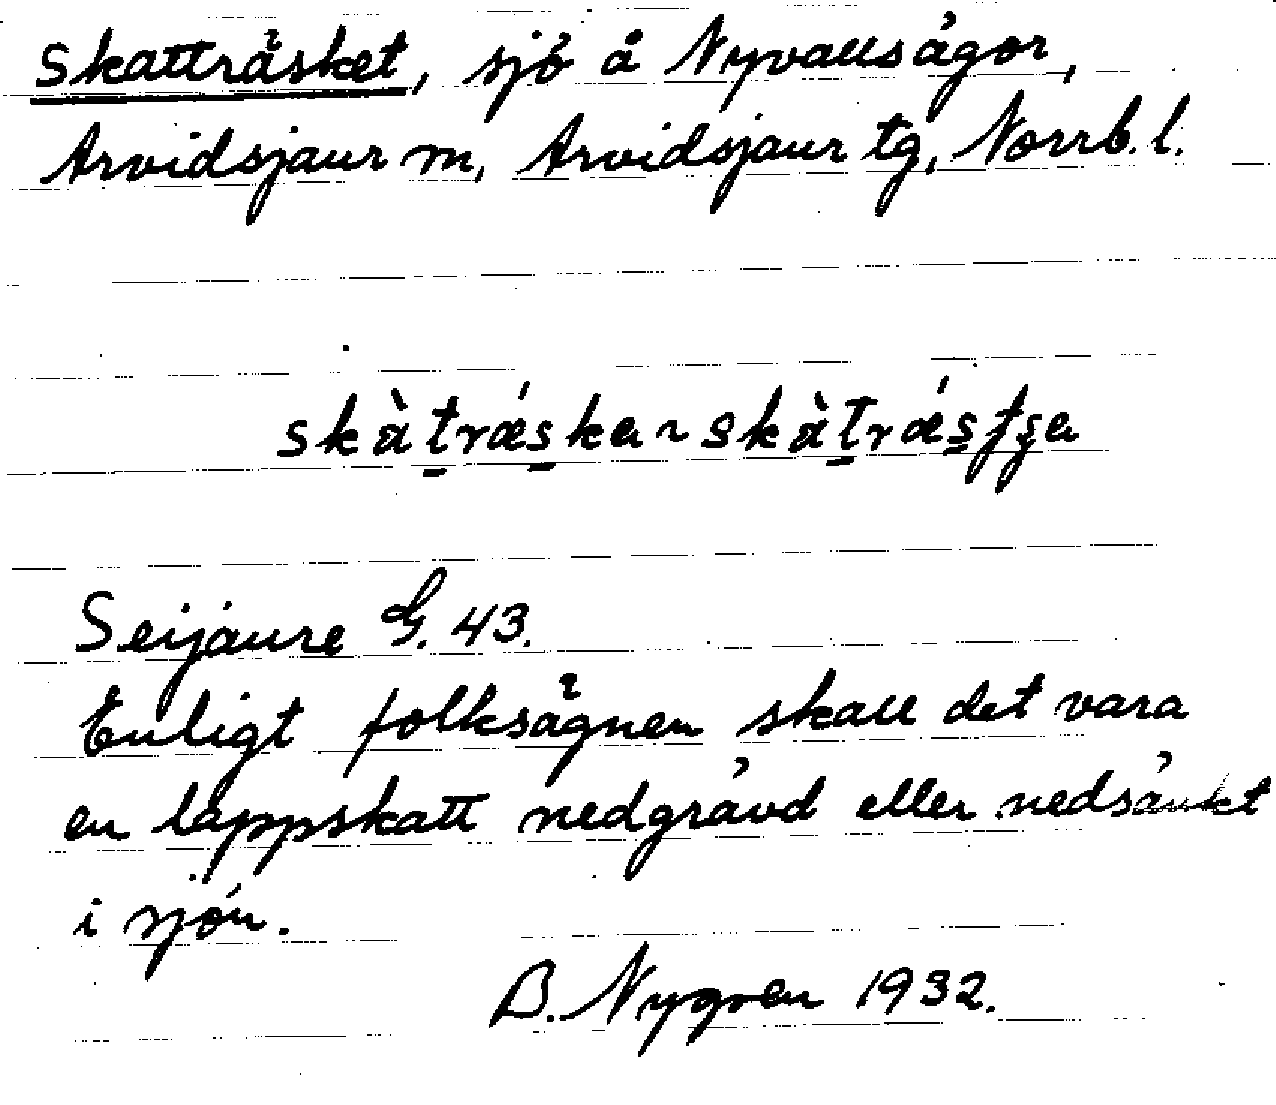 Skatträsket, sjö å Nyvallsägor,
Arvidsjaur m, Arvidsjaur tg, Norrb. l.
Seijaure G. 43.
Enligt folksägnen skall det vara
en lappskatt nedgrävd eller nedsänkt
i sjön.
B. Nygren 1932.